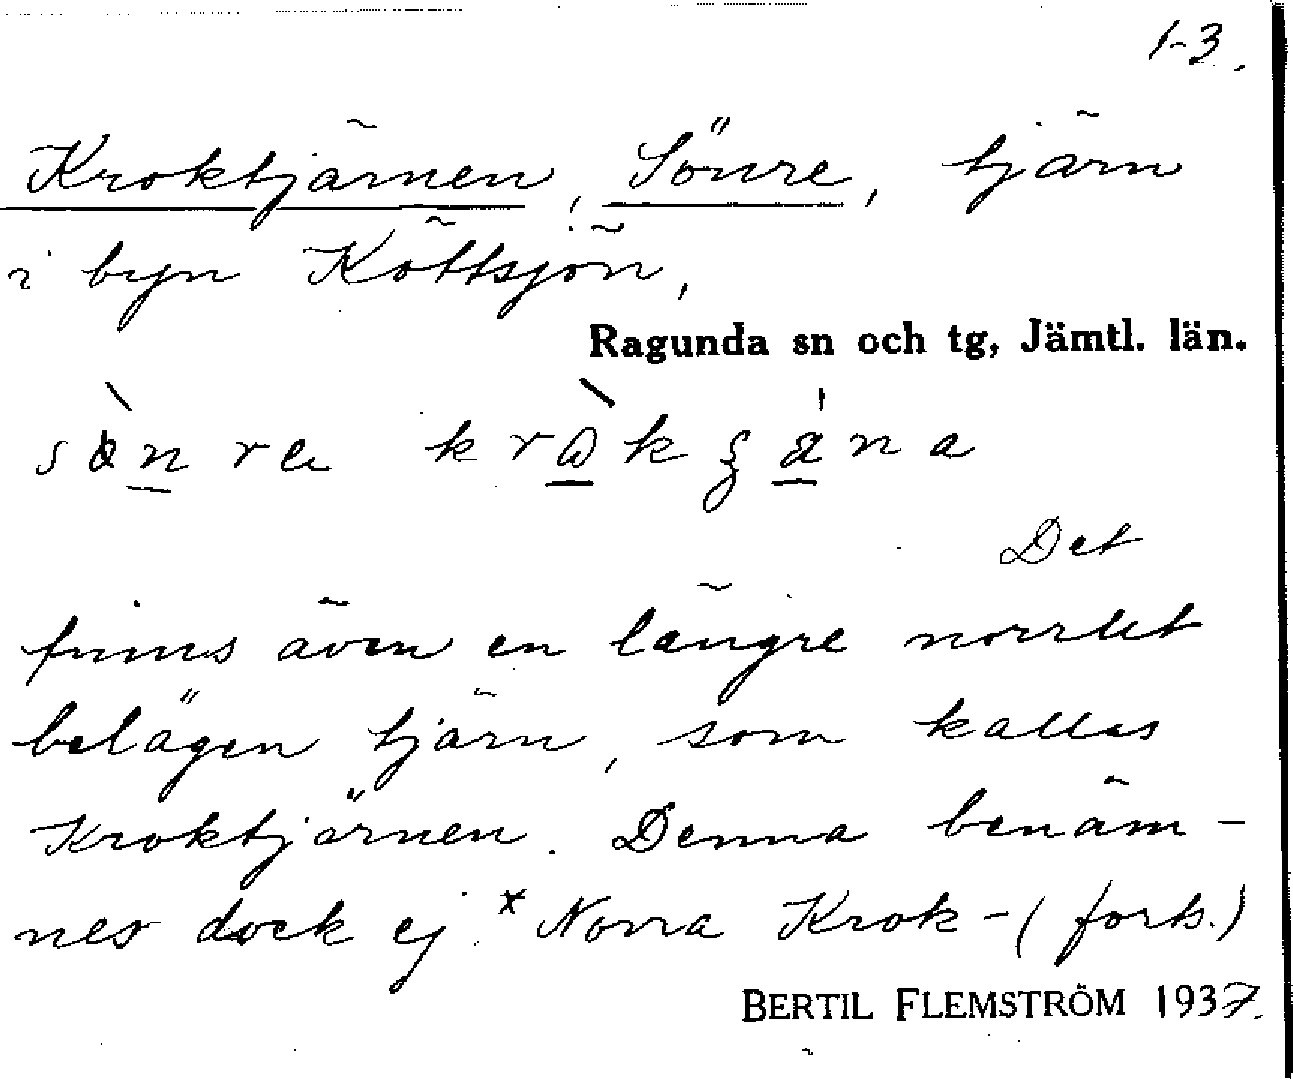 1-3.
Kroktjärnen, Sönre, tjärn
i byn Köttsjön,
Ragunda sn och tg, Jämtl. län.
Det
finns även en längre norrut
belägen tjärn, som kallas
Kroktjärnen. Denna benäm-
nes dock ej *Norra Krok- (forts.)
BERTIL FLEMSTRÖM 1937.